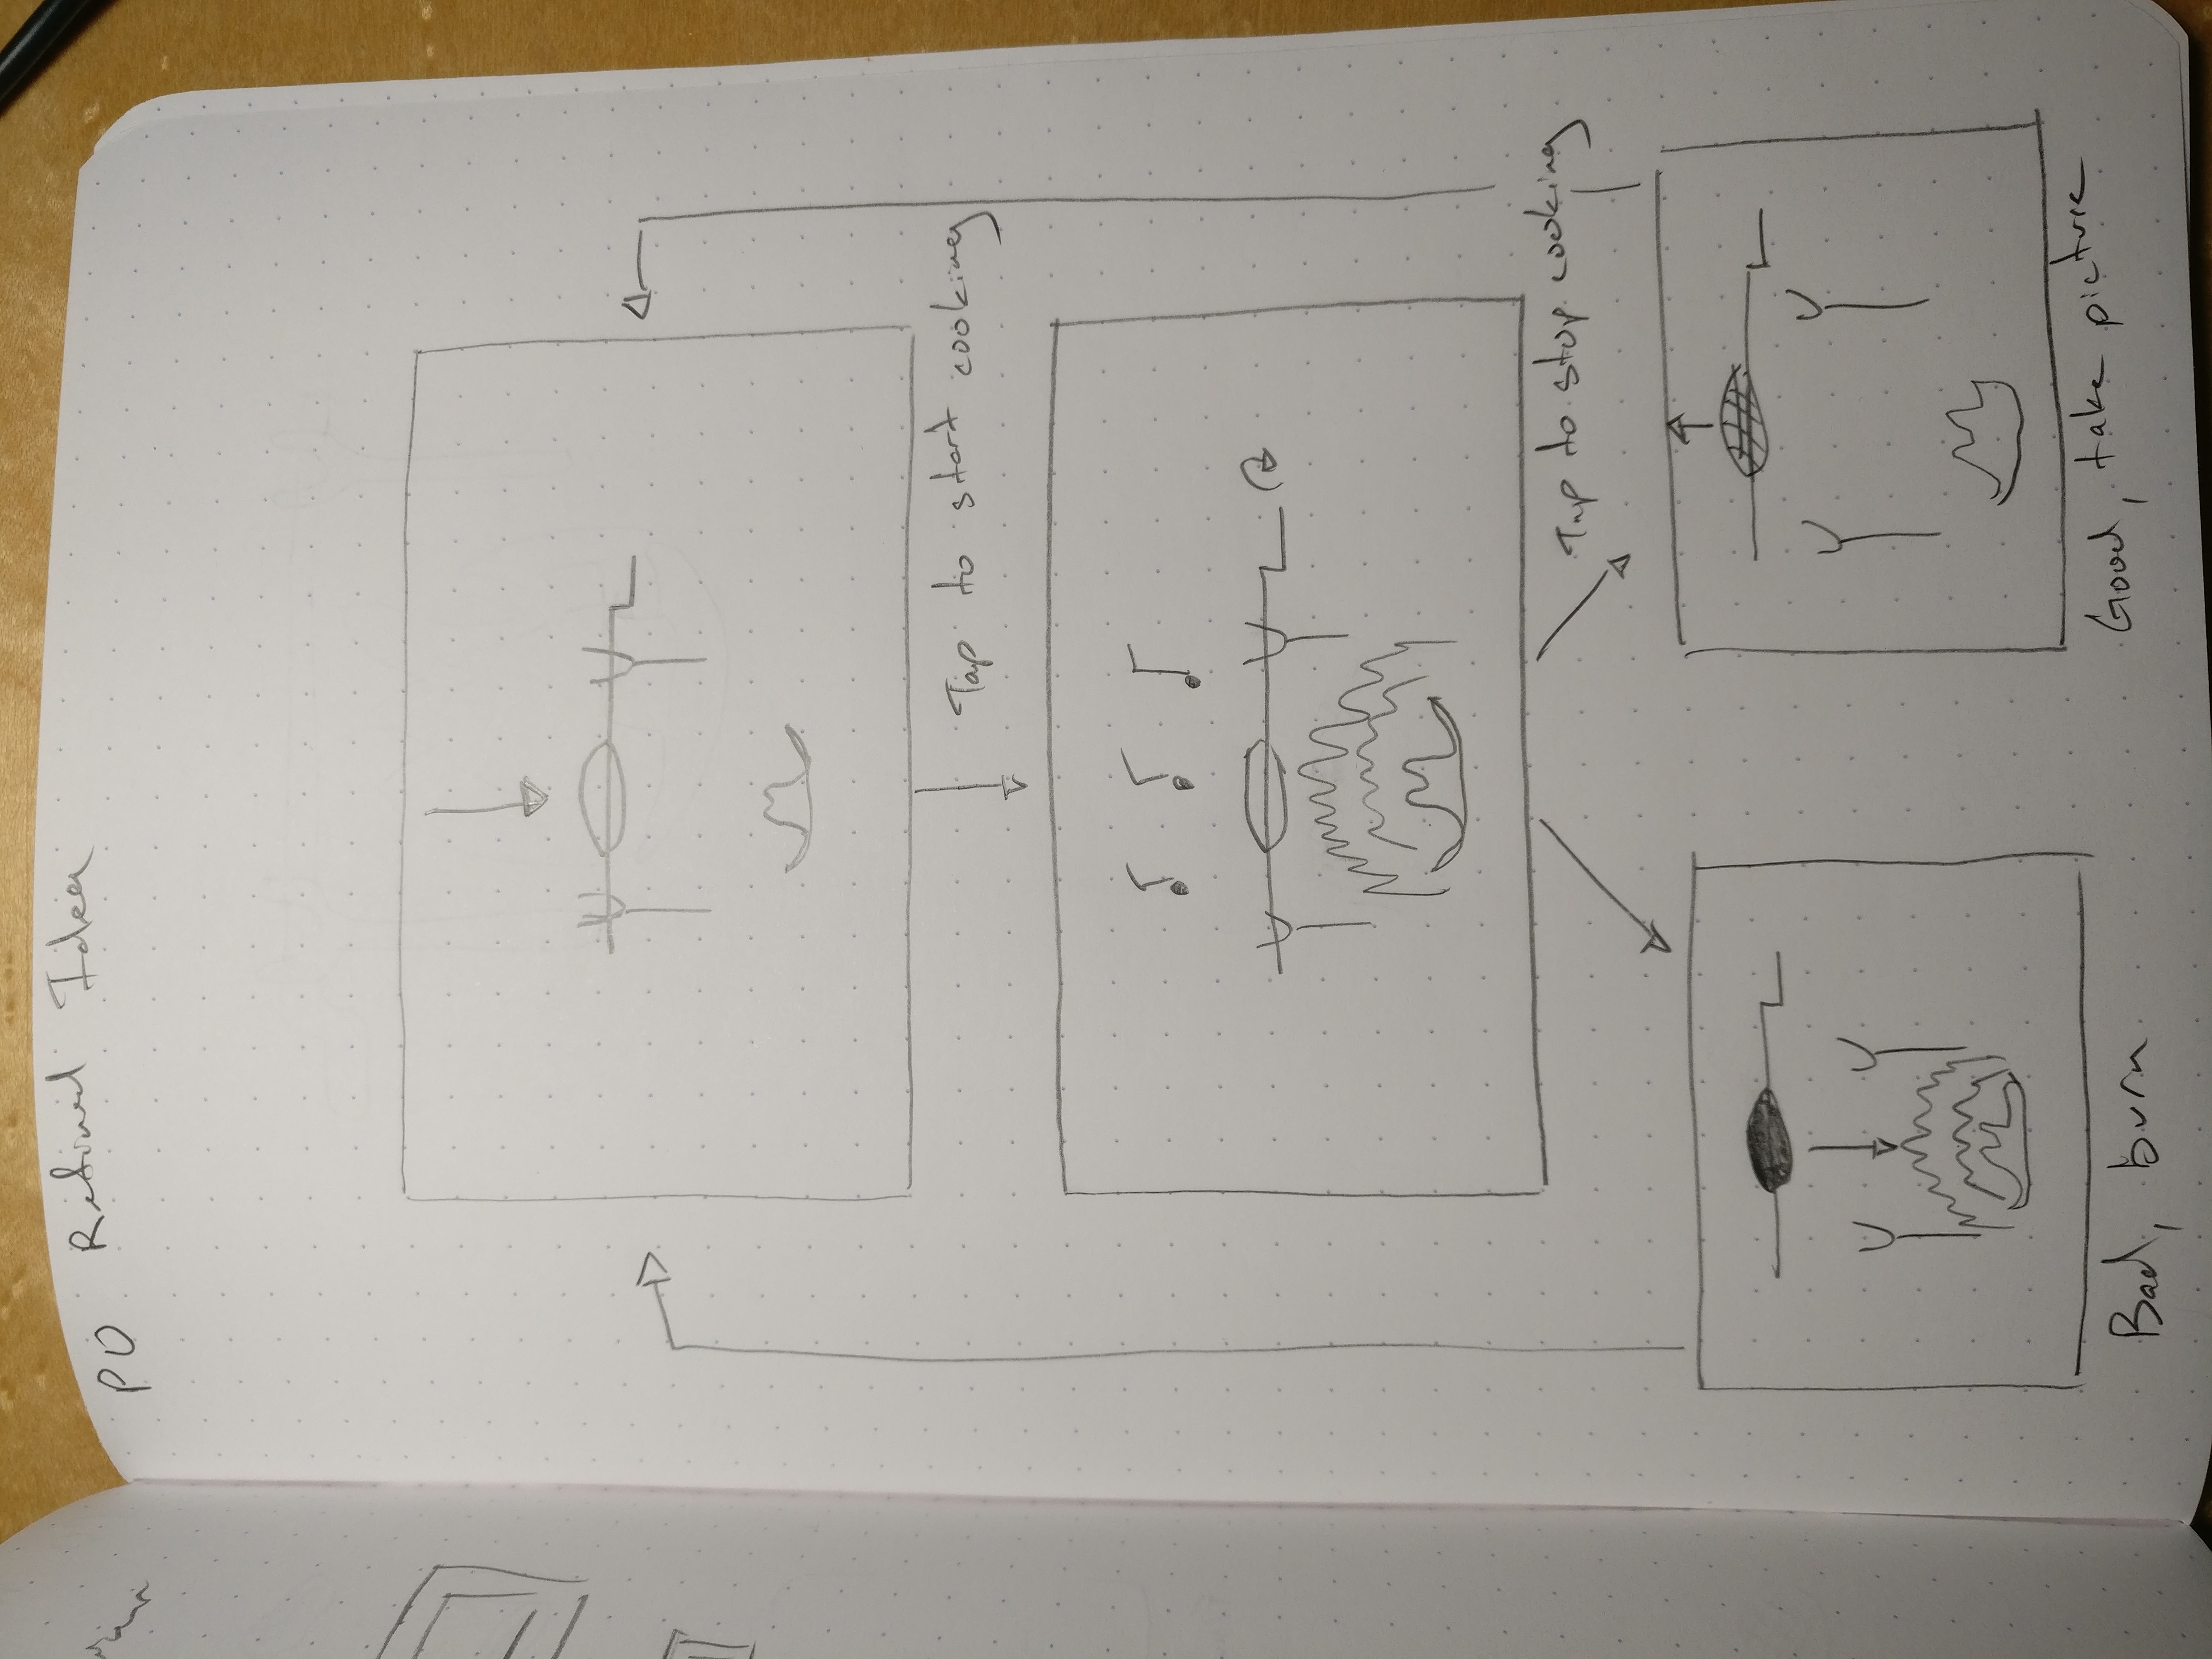 PO Refined Idea
Tap to start cooking
Tap to stop cooking
Bad, burn
Good, take picture